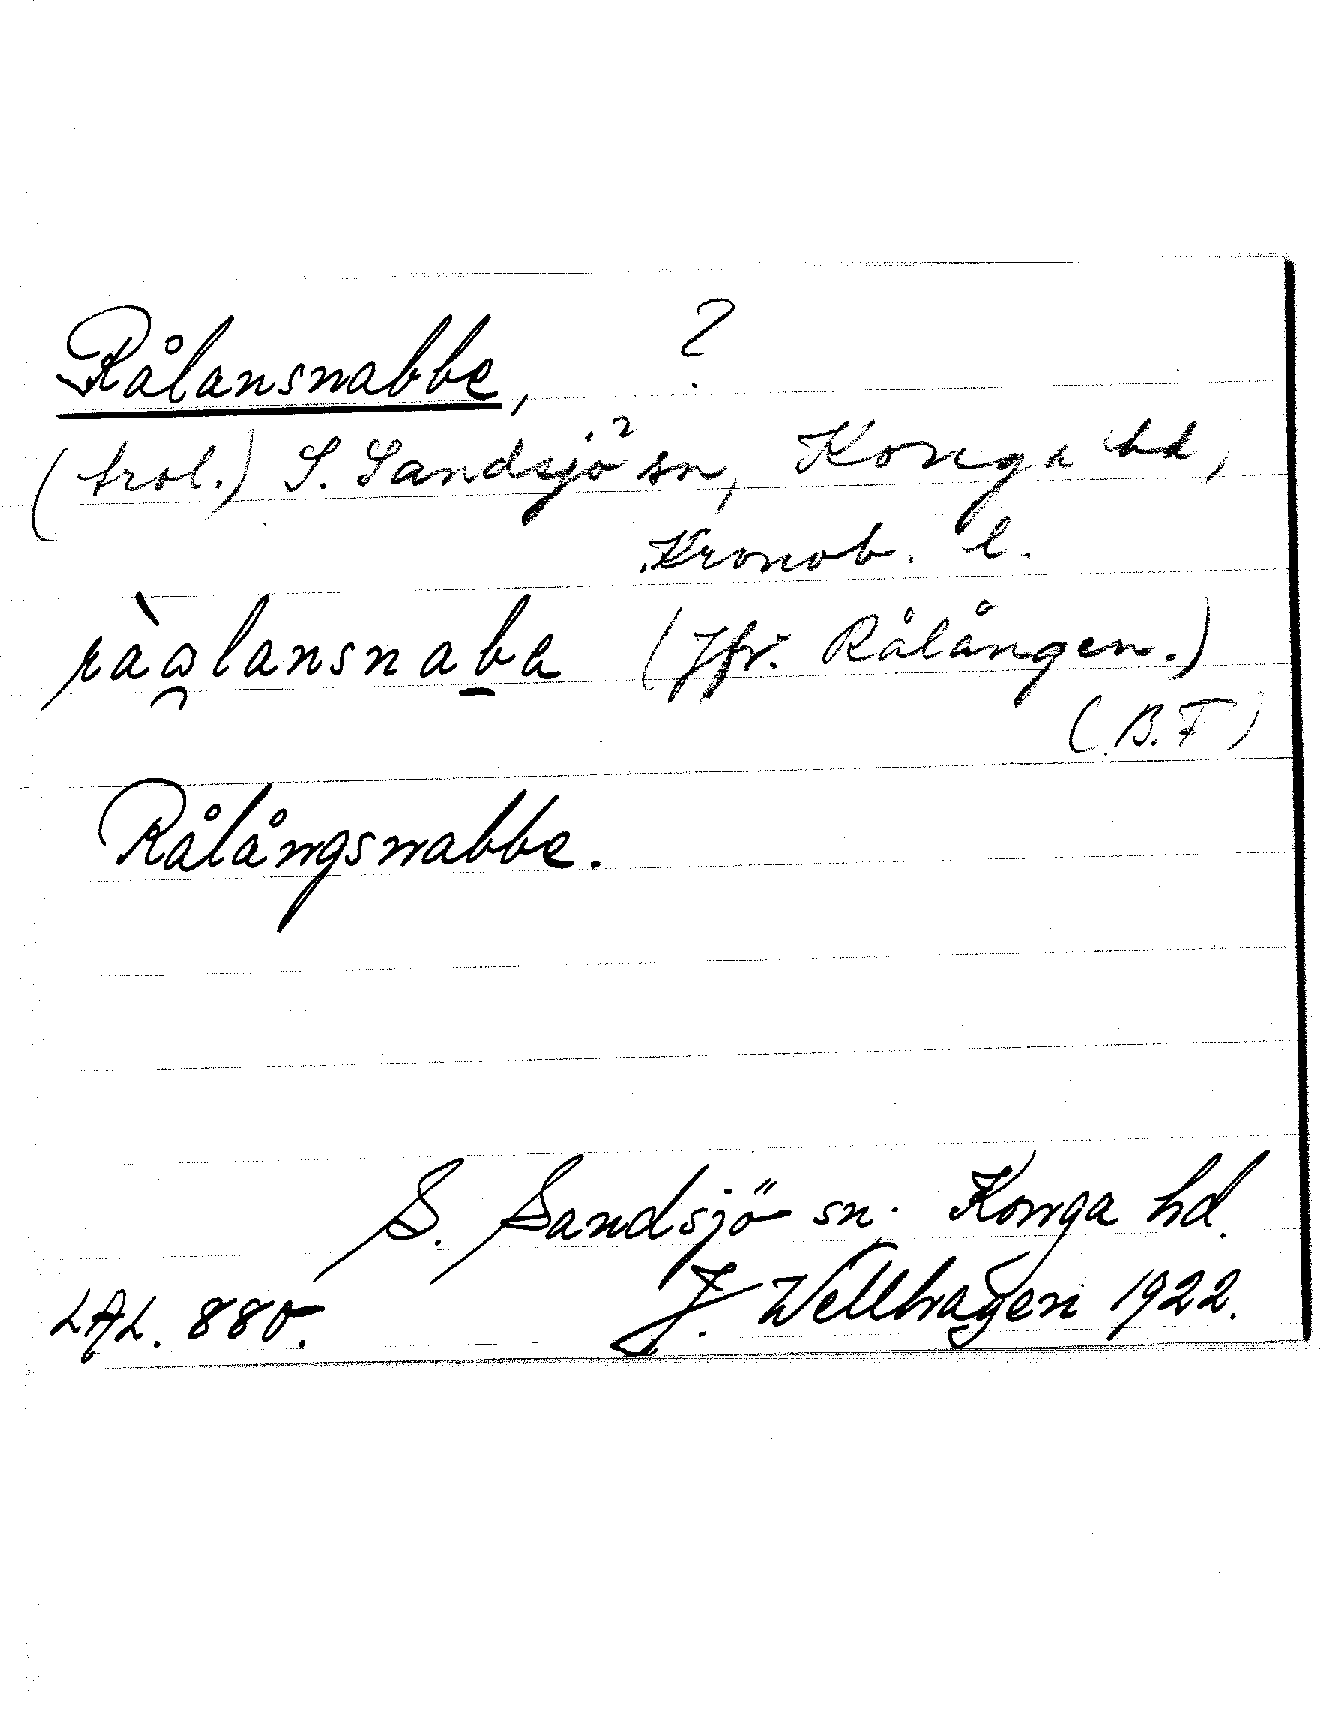 Rålansnabbe, ?
(trol.) S. Sandsjö sn, Konga hd,
Kronob. l.
(Jfr. Rålången.)
(B.F)
Rålångsnabbe.
S. Sandsjö sn. Konga hd.
LAL. 880. J. Wellhagen 1922.